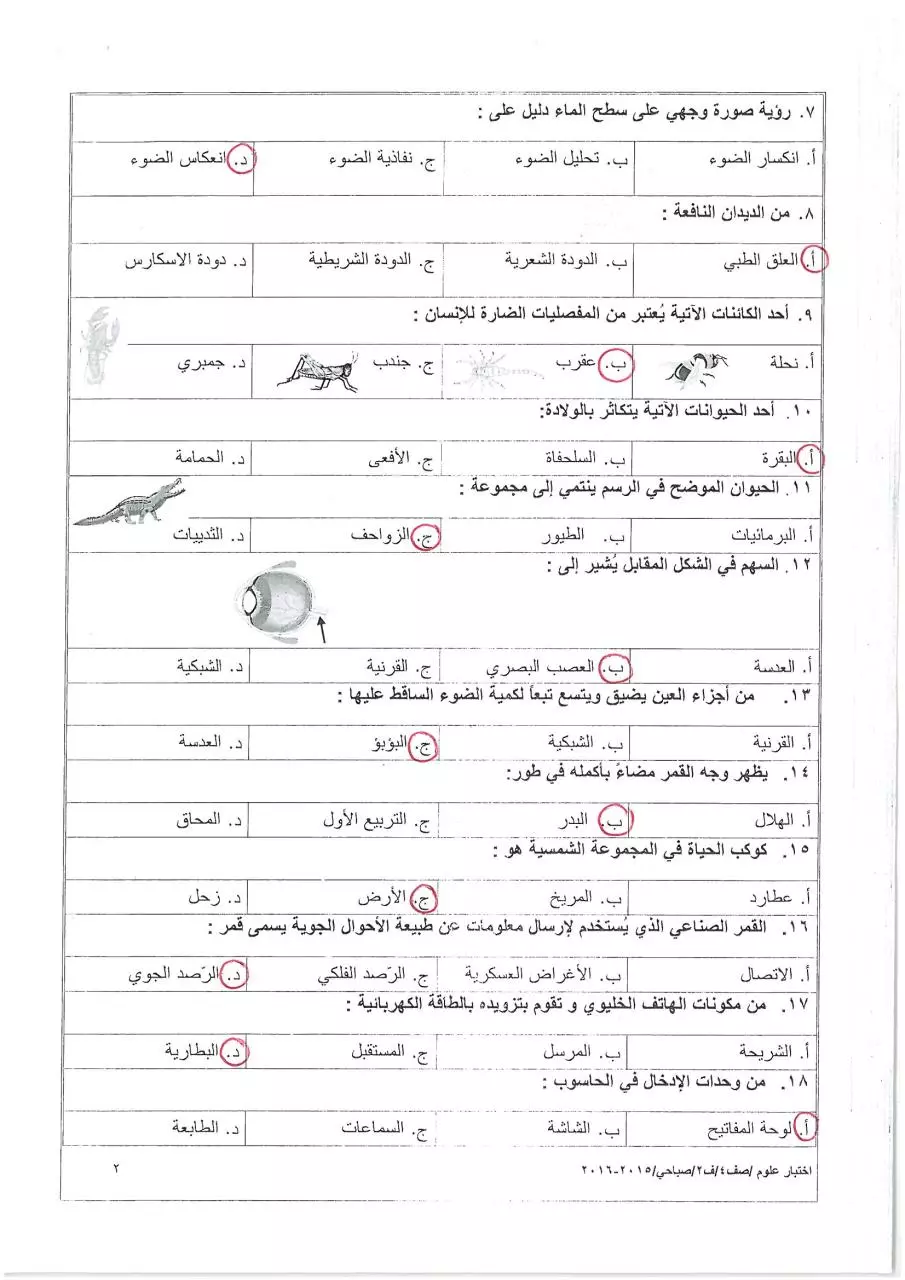 ٢
٧. رؤية صورة وجهي على سطح الماء دليل على :
أ. انكسار الضوء ب. تحليل الضوء ج. نفاذية الضوء د. انعكاس الضوء
٨. من الديدان النافعة :
أ. العلق الطبي ب. الدودة الشعرية ج. الدودة الشريطية د. دودة الاسكارس
٩. أحد الكائنات الآتية يُعتبر من المفصليات الضارة للإنسان :
أ. نحلة ب. عقرب ج. جندب د. جمبري
١٠. أحد الحيوانات الآتية يتكاثر بالولادة:
أ. البقرة ب. السلحفاة ج. الأفعى د. الحمامة
١١. الحيوان الموضح في الرسم ينتمي إلى مجموعة :
أ. البرمائيات ب. الطيور ج. الزواحف د. الثدييات
١٢. السهم في الشكل المقابل يُشير إلى :
أ. العدسة ب. العصب البصري ج. القرنية د. الشبكية
١٣. من أجزاء العين يضيق ويتسع تبعاً لكمية الضوء الساقط عليها :
أ. القرنية ب. الشبكية ج. البؤبؤ د. العدسة
١٤. يظهر وجه القمر مضاءً بأكمله في طور:
أ. الهلال ب. البدر ج. التربيع الأول د. المحاق
١٥. كوكب الحياة في المجموعة الشمسية هو :
أ. عطارد ب. المريخ ج. الأرض د. زحل
١٦. القمر الصناعي الذي يُستخدم لإرسال معلومات عن طبيعة الأحوال الجوية يسمى قمر :
أ. الاتصال ب. الأغراض العسكرية ج. الرّصد الفلكي د. الرّصد الجوي
١٧. من مكونات الهاتف الخليوي و تقوم بتزويده بالطاقة الكهربائية :
أ. الشريحة ب. المرسل ج. المستقبل د. البطارية
١٨. من وحدات الإدخال في الحاسوب :
أ. لوحة المفاتيح ب. الشاشة ج. السماعات د. الطابعة
اختبار علوم /صف٤/ف٢/صباحي/٢٠١٥-٢٠١٦ ٢